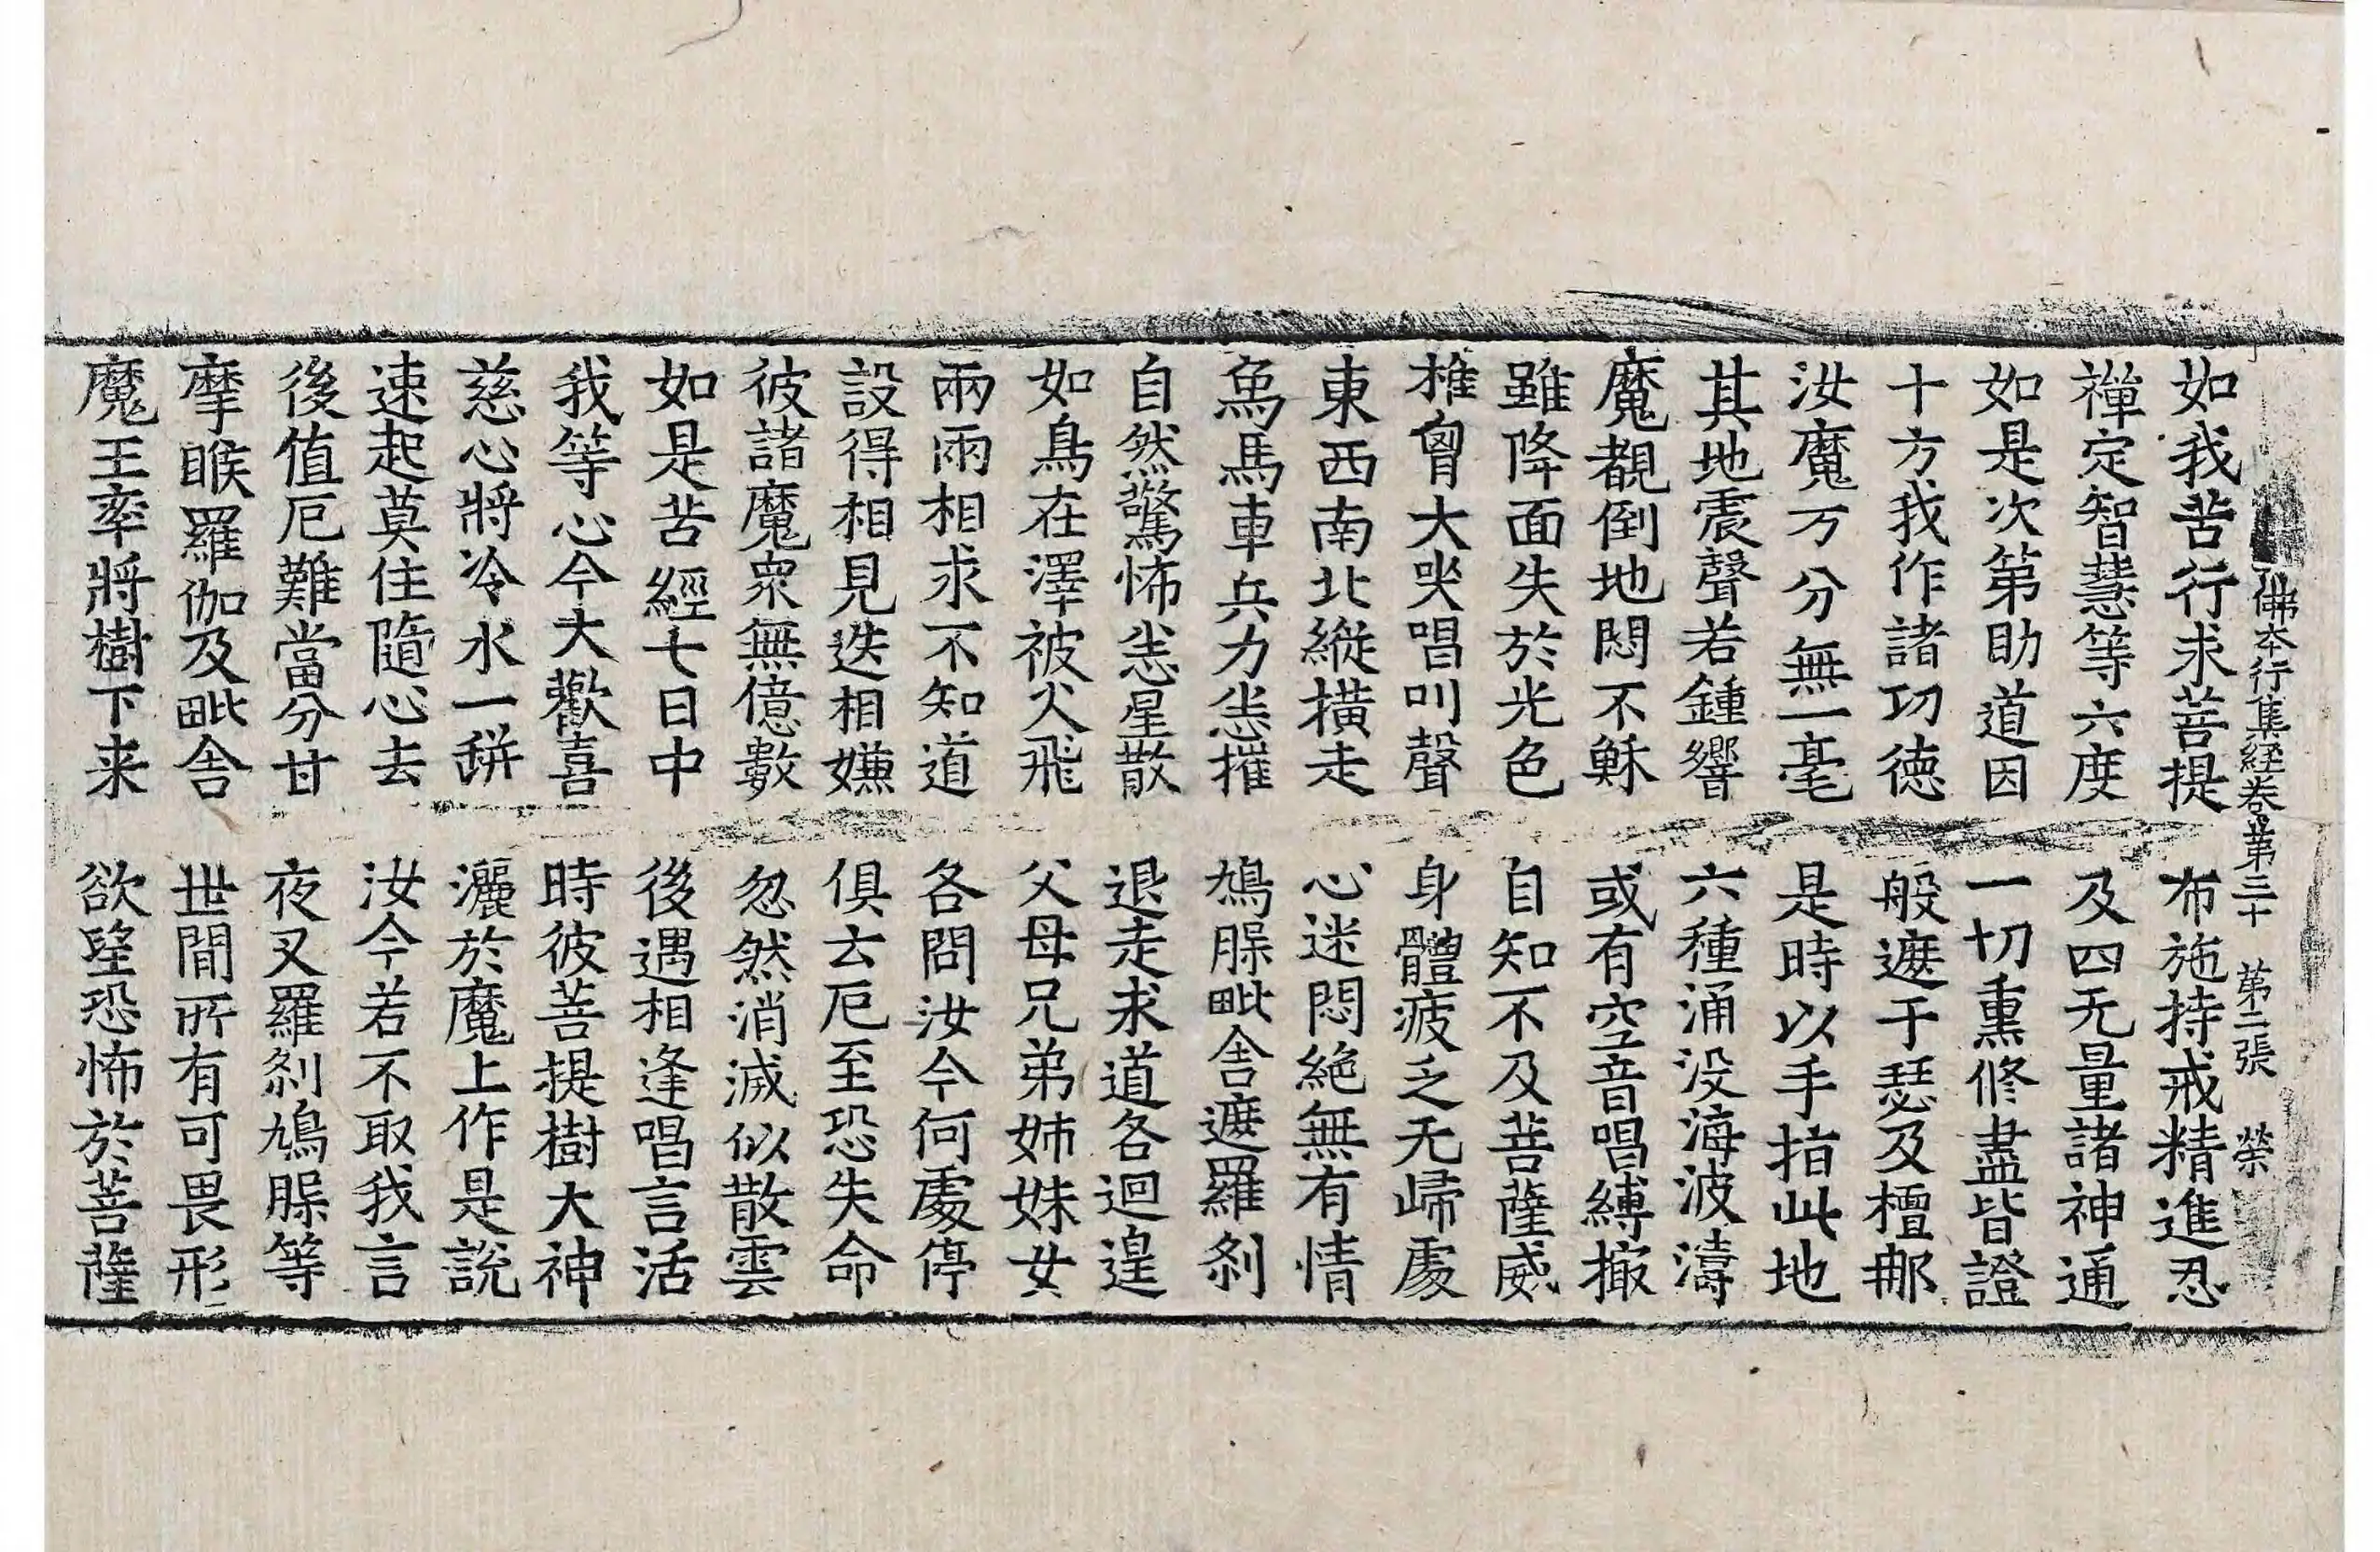 佛本行集経卷第三十 第二張 榮
如我苦行求菩提 布施持戒精進忍
禪定智慧等六度 及四无量諸神通
如是次第助道因 一切熏修盡皆證
十方我作諸功德 般遮于瑟及檀那
汝魔万分無一毫 是時以手指此地
其地震聲若鍾響 六種涌没海波濤
魔覩倒地悶不穌 或有空音唱縛撮
雖降面失於光色 自知不及菩薩威
椎胷大哭唱叫聲 身體疲乏无歸處
東西南北縱橫走 心迷悶絶無有情
象馬車兵力悉摧 鳩脲毗舍遮羅刹
自然驚怖悉星散 退走求道各迴遑
如鳥在澤被火飛 父母兄弟姉妹女
兩兩相求不知道 各問汝今何處停
設得相見迭相嫌 俱云厄至恐失命
彼諸魔衆無億數 忽然消滅似散雲
如是苦經七日中 後遇相逢唱言活
我等心今大歡喜 時彼菩提樹大神
慈心將冷水一缾 灑於魔上作是說
速起莫住隨心去 汝今若不取我言
後值厄難當分甘 夜叉羅刹鳩脲等
摩睺羅伽及毗舍 世間所有可畏形
魔王率將樹下来 欲望恐怖於菩薩